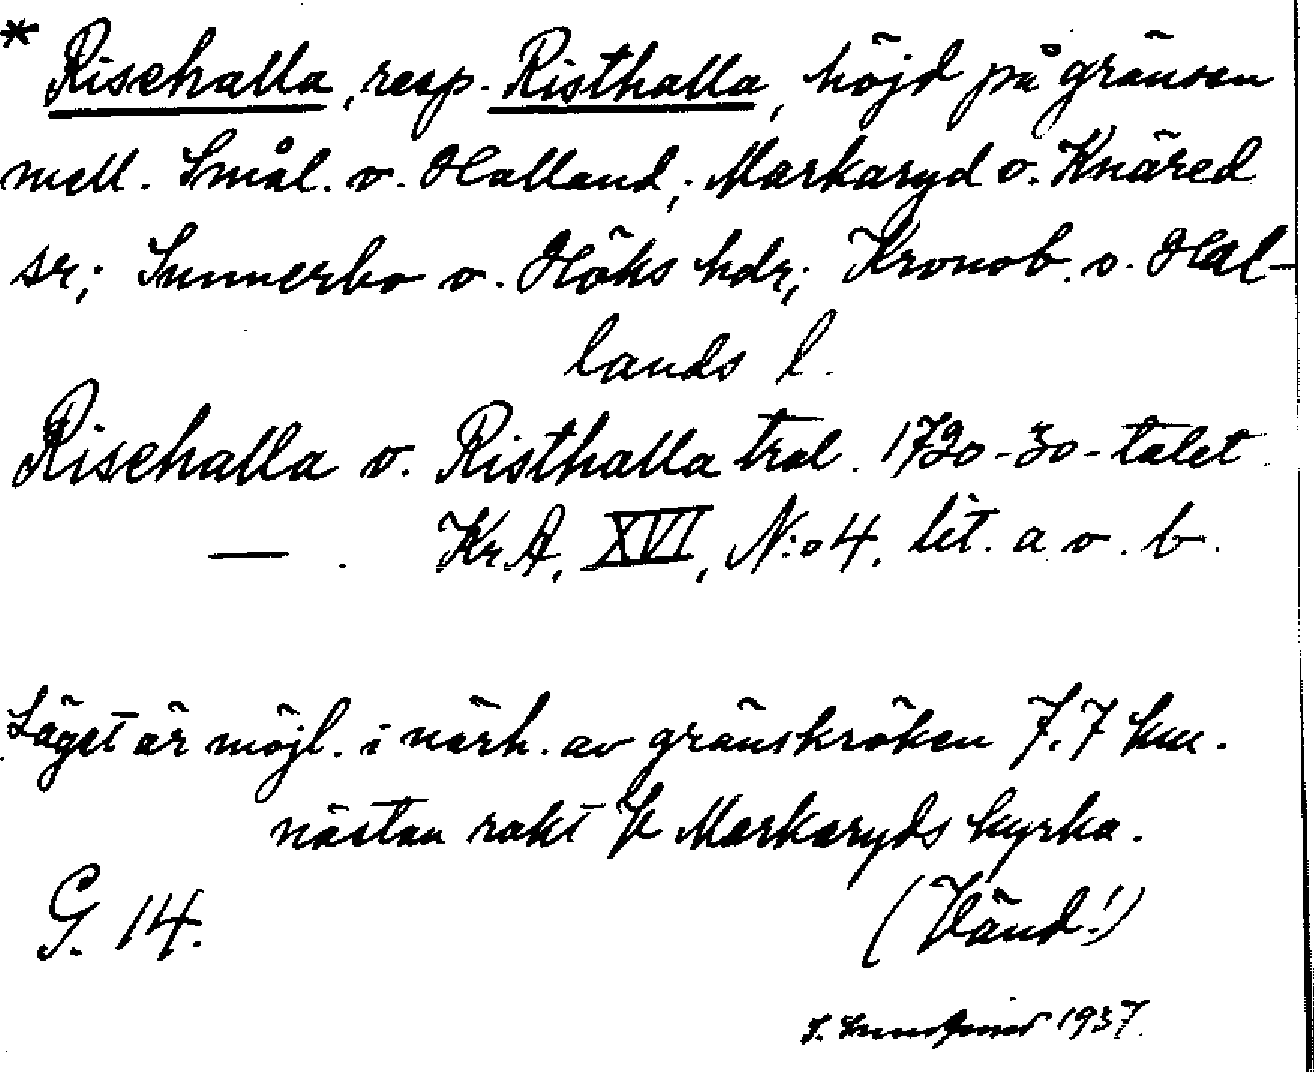 * Risehalla, resp. Risthalla, höjd på gränsen
mell. Smål. o. Halland; Markaryd o. Knäred
sr; Sunnerbo o. Höks hdr; Kronob. o. Hal-
lands l.
Risehalla o. Risthalla trol. 1720-30-talet.
— . Kr A, XVI, N:o 4. lit. a o. b.
Läget är möjl. i närh. av gränskröken 7.7 km.
nästan rakt V Markaryds kyrka.
G. 14. (Vänd!)
1937.